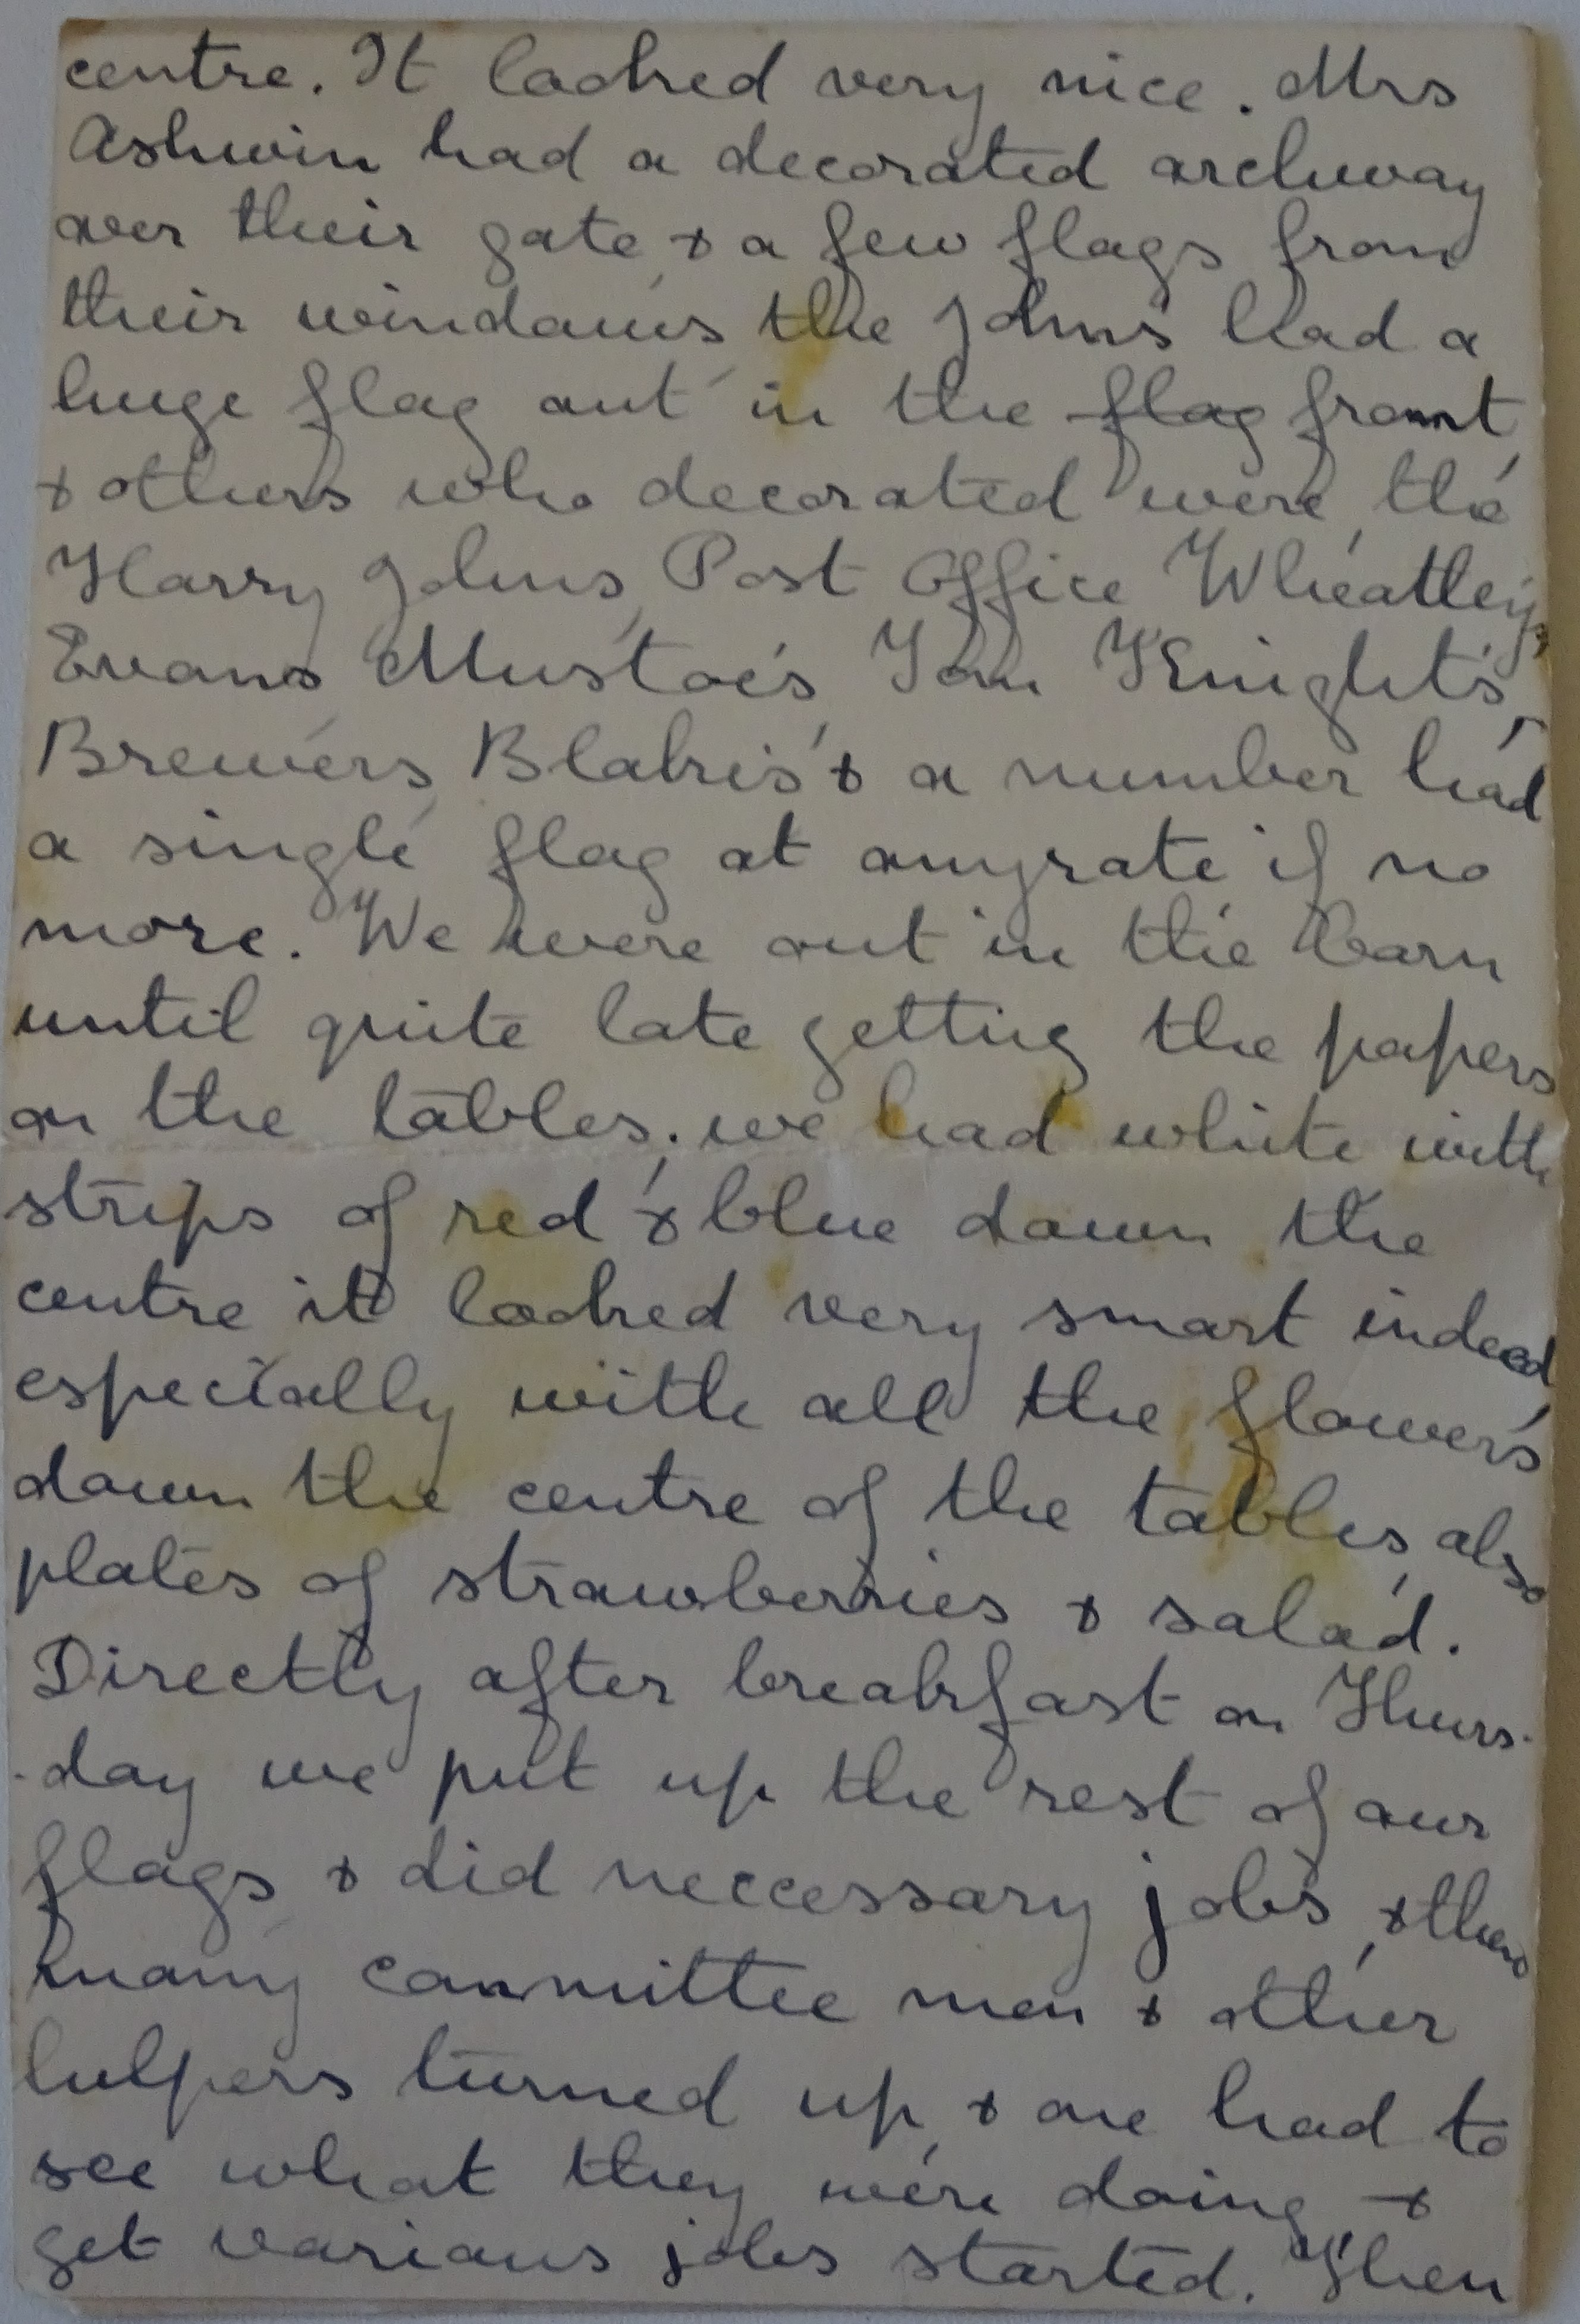 centre. It looked very nice. Mrs
Ashwin had a decorated archway
over their gate & a few flags from
their windows, the Johns had a
huge flag out in the flag front
& others who decorated were, the
Harry Johns, Post Office Wheatley's,
Evans Mustoe's, Tom Knight's,
Brewers, Blakes' & a number had
a single flag at anyrate if no
more. We were out in the barn
until quite late getting the papers
on the tables; we had white with
strips of red & blue down the
centre it looked very smart indeed
especially with all the flowers
down the centre of the tables, also
plates of strawberries & salad.
Directly after breakfast on Thurs-
-day we put up the rest of our
flags & did neccessary jobs, & then
many committee men & other
helpers turned up, & one had to
see what they were doing &
get various jobs started. Then